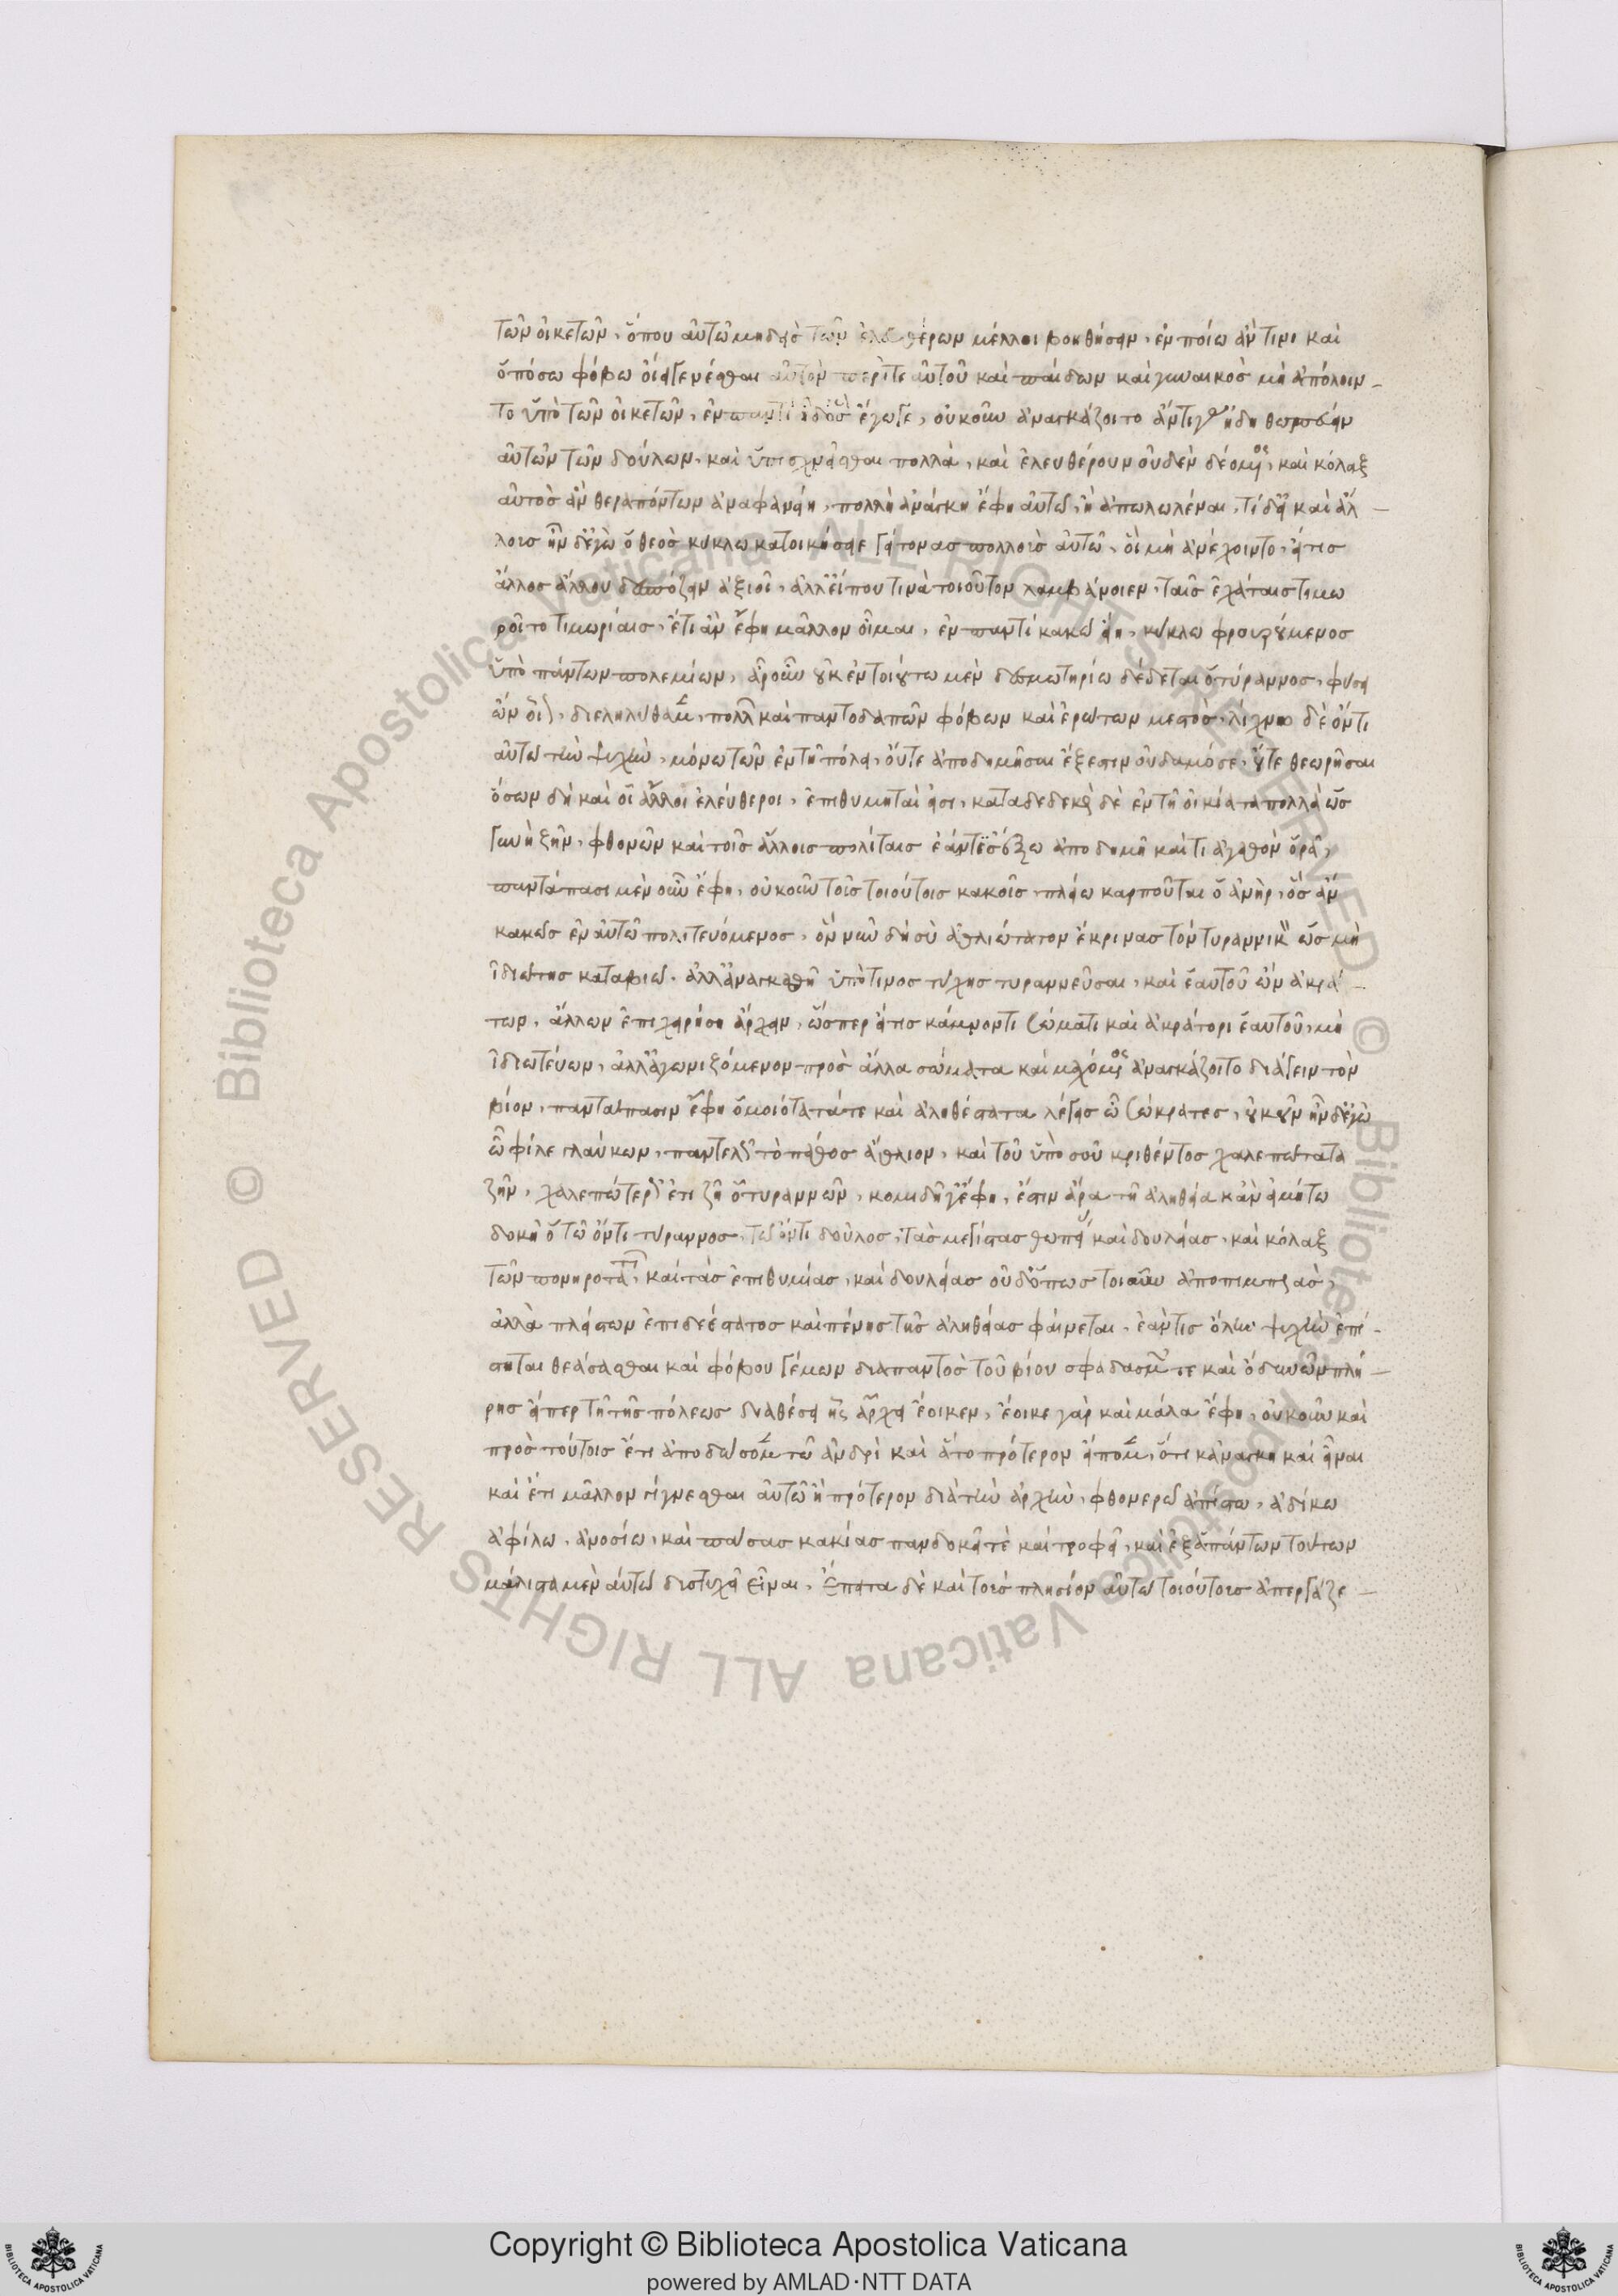 τῶν οἰκετῶν, ὅπου αὐτῶ μηδεὶς τῶν ἐλευθέρων μέλλοι βοηθήσειν, ἐν ποίω ἄν τινι καὶ
ὁπόσω φόβω οἴει γενέσθαι αὐτὸν περί τε αὑτοῦ καὶ παίδων καὶ γυναικὸς μὴ ἀπόλοιν-
το ὑπὸ τῶν οἰκετῶν, ἐν παντὶ ἔγωγε, οὐκοῦν ἀναγκάζοιτο ἄν τινας ἤδη θωπεύειν
αὐτῶν τῶν δούλων, καὶ ὑπισχνεῖσθαι πολλὰ, καὶ ἐλευθέρουν οὐδὲν δεόμενος, καὶ κόλαξ
αὐτὸς ἂν θεραπόντων ἀναφανείη, πολλὴ ἀνάγκη ἔφη αὐτῶ, ἢ ἀπολωλέναι, τί δ' εἰ καὶ ἄλ-
λους ἦν δ' ἐγὼ ὁ θεὸς κύκλω κατοικήσειε γείτονας πολλοὺς αὐτῶ, οἳ μὴ ἀνέχοιντο, εἴ τις
ἄλλος ἄλλου δεσπόζειν ἀξιοῖ, ἀλλ' εἴ που τινὰ τοιοῦτον λαμβάνοιεν, ταῖς ἐσχάταις τιμω
ροῖτο τιμωρίαις, ἔτι ἂν ἔφη μᾶλλον οἶμαι, ἐν παντὶ κακοῦ εἴη, κύκλω φρουρούμενος
ὑπὸ πάντων πολεμίων, ἆρ' οὖν οὐκ ἐν τοιούτω μὲν δεσμωτηρίω δέδεται ὁ τύραννος, φύσει
ὢν οἷον διεληλύθαμεν, πολλῶν καὶ παντοδαπῶν φόβων καὶ ἐρώτων μεστὸς, λίχνω δὲ ὄντι
αὐτῶ τὴν ψυχὴν, μόνω τῶν ἐν τῆ πόλει, οὔτε ἀποδημῆσαι ἔξεστιν οὐδαμόσε, οὔτε θεωρῆσαι
ὅσων δὴ καὶ οἱ ἄλλοι ἐλεύθεροι, ἐπιθυμηταί εἰσι, καταδεδυκὼς δὲ ἐν τῆ οἰκία τὰ πολλὰ ὡς
γυνὴ ζῆν, φθονῶν καὶ τοῖς ἄλλοις πολίταις ἐάν τις ἔξω ἀποδημῆ καί τι ἀγαθὸν ὁρᾶ,
παντάπασι μὲν οὖν ἔφη, οὐκοῦν τοῖς τοιούτοις κακοῖς πλείω καρποῦται ὁ ἀνὴρ, ὃς ἂν
κακῶς ἐν αὑτῶ πολιτευόμενος, ὃν νῦν δὴ σὺ ἀθλιώτατον ἔκρινας τὸν τυραννικὸν ὡς μὴ
ἰδιώτης καταβιῶ. ἀλλ' ἀναγκασθῆ ὑπό τινος τύχης τυραννεῦσαι, καὶ ἑαυτοῦ ὢν ἀκρά-
τωρ, ἄλλων ἐπιχειρήση ἄρχειν, ὥσπερ εἴ τις κάμνοντι σώματι καὶ ἀκράτορι ἑαυτοῦ, μὴ
ἰδιωτεύων, ἀλλ' ἀγωνιζόμενον πρὸς ἄλλα σώματα καὶ μαχόμενος ἀναγκάζοιτο διάγειν τὸν
βίον, παντάπασιν ἔφη ὁμοιότατά τε καὶ ἀληθέστατα λέγεις ὦ σώκρατες, οὐκοῦν ἦν δ' ἐγὼ
ὦ φίλε γλαύκων, παντελῶς τὸ πάθος ἄθλιον, καὶ τοῦ ὑπὸ σοῦ κριθέντος χαλεπώτατα
ζῆν, χαλεπώτερον ἔτι ζῆ ὁ τυραννῶν, κομιδῆ γ' ἔφη, ἔστιν ἄρα τῆ ἀληθεία κἂν εἰ μή τω
δοκῆ ὁ τῶ ὄντι τύραννος, τῶ ὄντι δοῦλος, τὰς μεγίστας θωπείας καὶ δουλείας, καὶ κόλαξ
τῶν πονηροτάτων, καὶ τὰς ἐπιθυμίας, καὶ δουλείας οὐδ' ὁπωστιοῦν ἀποπιμπλὰς,
ἀλλὰ πλείστων ἐπιδεέστατος καὶ πένης τῆς ἀληθείας φαίνεται, ἐάν τις ὅλην ψυχὴν ἐπί-
στηται θεάσασθαι καὶ φόβου γέμων διαπαντὸς τοῦ βίου σφαδασμῶν τε καὶ ὀδυνῶν πλή-
ρης εἴπερ τῆ τῆς πόλεως διαθέσει ἧς ἄρχει ἔοικεν, ἔοικε γὰρ καὶ μάλα ἔφη, οὐκοῦν καὶ
πρὸς τούτοις ἔτι ἀποδώσομεν τῶ ἀνδρὶ καὶ ἃ τὸ πρότερον εἴπομεν, ὅτι κἀνάγκη καὶ εἶναι
καὶ ἔτι μᾶλλον γίγνεσθαι αὐτῶ ἢ πρότερον διὰ τὴν ἀρχὴν, φθονερῶ ἀπίστω, ἀδίκω
ἀφίλω, ἀνοσίω, καὶ πάσας κακίας πανδοκεῖ τὲ καὶ τροφεῖ, καὶ ἐξ ἁπάντων τούτων
μάλιστα μὲν αὐτῶ δυστυχεῖ εἶναι. ἔπειτα δὲ καὶ τοὺς πλησίον αὐτῶ τοιούτους ἀπεργάζε-
Copyright © Biblioteca Apostolica Vaticana
powered by AMLAD·NTT DATA